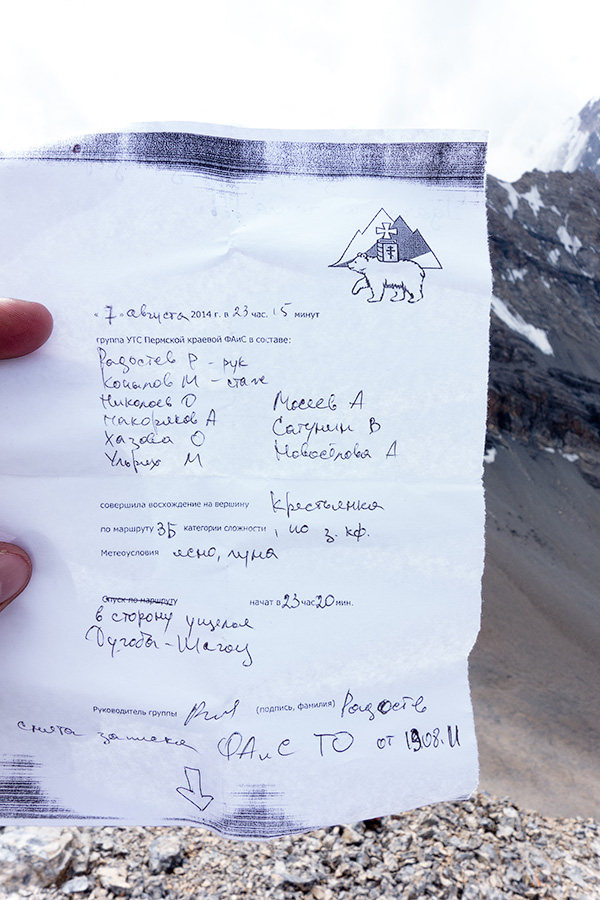 « 7 » августа 2014 г. в 23 час. 15 минут
группа УТС Пермской краевой ФАиС в составе:
Радостев Р - рук
Копылов М - стаж
Николаев О Мосеев А
Макаряков А Сатунин В
Хазова О Новосёлова А
Ульрих М
совершила восхождение на вершину Крестьянка
по маршруту 3Б категории сложности, по з. кф.
Метеоусловия ясно, луна
Спуск по маршруту начат в 23 час 20 мин.
в сторону ущелья
Дугобы-
Руководитель группы (подпись, фамилия) Радостев
снята записка ФАиС ТО от 08.11